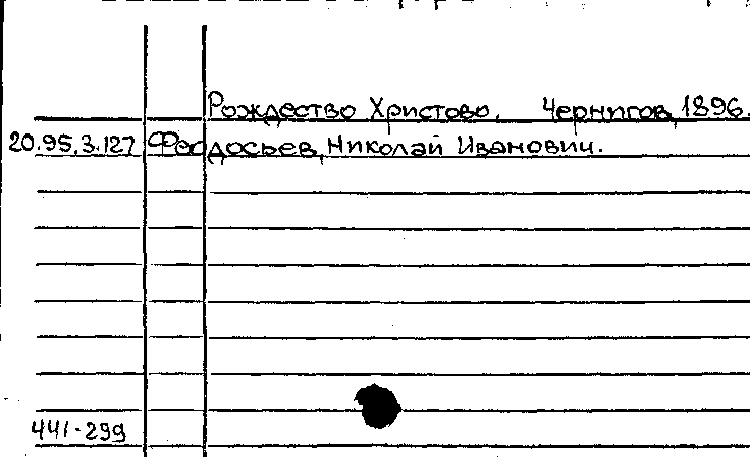 Рождество Христово. Чернигов, 1896.
20.95.3.127 Феодосьев, Николай Иванович.
441-299